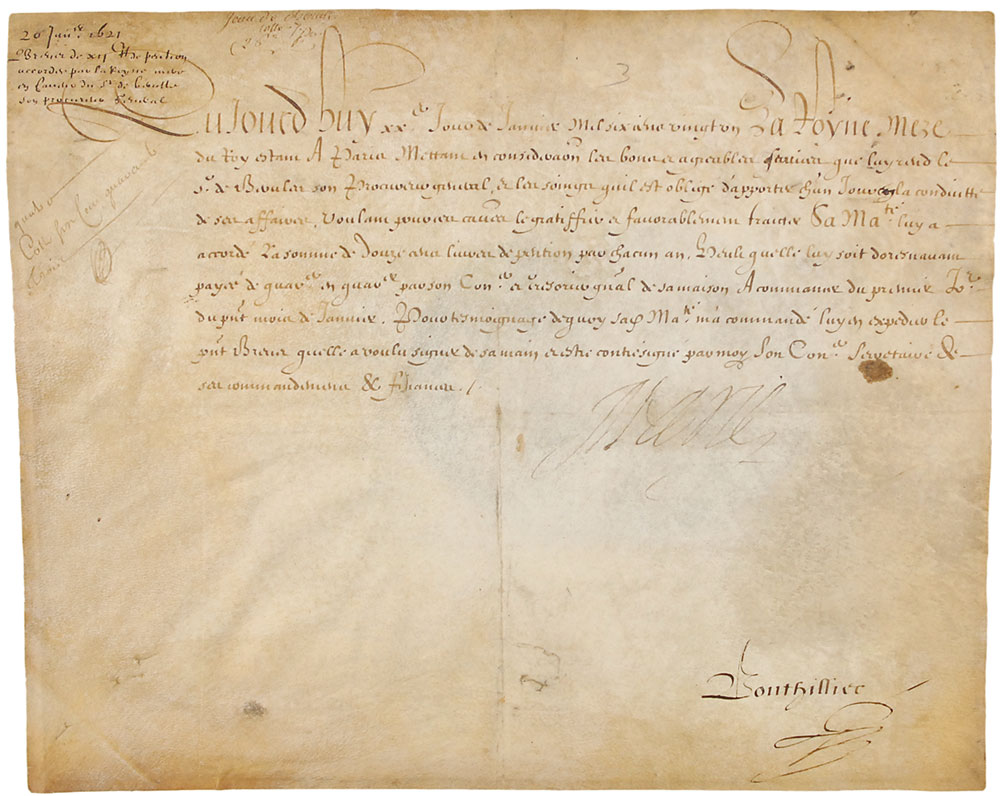 20 Janv.er 1621
Brevet de xij.c tt de pention
accordee par la Royne mere
en faveur du Sr de
son procureur general
Jean de
3
Aujourdhuy xx.e Jour de Janvier Mil six cens vingt un La Royne Mere
du Roy estant A Paris Mettant en consideraon les bons et agreables services que luy rend le
Sr. de son Procureur general, et les soings quil est obligé d'apporter chūn Jour en la conduitte
de ses affaires, Voulant pour ces causes le gratiffier et favorablement traicter Sa Ma.té luy a
accordé La somme de douze cens livres de pention par chacun an, Veult quelle luy soit doresnavant
payée de quar.er en quar.er par son Con.er et Tresorier gñal de sa maison A commancer du premier Jo.r
du pñt mois de Janvier. Pour tesmoignage de quoy sad. Ma.té m'a commandé luy en expedier le
pñt Brevet quelle a voulu signer de sa main et estre contresigné par moy Son Con.er Secretaire de
ses commandemens & finances. /.
Marie
Bouthillier